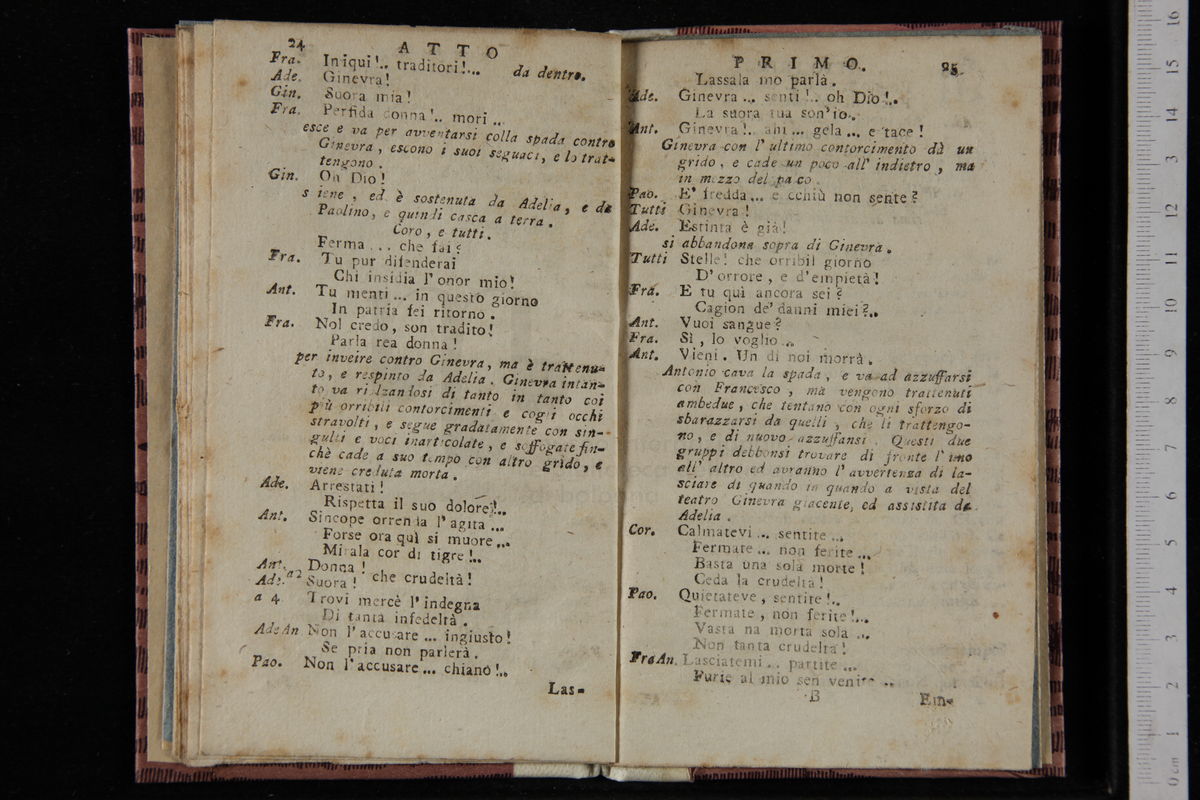 24 ATTO
Fra. Iniqui!.. traditori!... da dentro.
Ade. Ginevra!
Gin. Suora mia!
Fra. Perfida donna!.. mori ..
esce e va per avventarsi colla spada contro
Ginevra, escono i suoi seguaci, e lo trat-
tengono.
Gin. Oh Dio!
s iene, ed è sostenuta da Adelia, e da
Paolino, e quindi casca a terra.
Coro, e tutti.
Ferma ... che fai?
Fra. Tu pur difenderai
Chi insidia l'onor mio!
Ant. Tu menti ... in questo giorno
In patria fei ritorno.
Fra. Nol credo, son tradito!
Parla rea donna!
per inveire contro Ginevra, ma è trattenu-
to, e respinto da Adelia. Ginevra intan-
to va rialzandosi di tanto in tanto coi
più orribili contorcimenti e cogli occhi
stravolti, e segue gradatamente con sin-
gulti e voci inarticolate, e soffogate fin-
chè cade a suo tempo con altro grido, e
viene creduta morta.
Ade. Arrestati!
Rispetta il suo dolore!..
Ant. Sincope orrenda l'agita ...
Forse ora quì si muore ...
Mirala cor di tigre!..
Ant. Donna!
Ade. a 2 Suora! che crudeltà!
a 4 Trovi mercè l'indegna
Di tanta infedeltà.
AdeAn Non l'accusare ... ingiusto!
Se pria non parlerà.
Pao. Non l'accusare... chiano!..
Las-
PRIMO. 25
Lassala mo parlà.
Ade. Ginevra ... senti!.. oh Dio!..
La suora tua son'io..
Ant. Ginevra!.. ahi ... gela ... e tace!
Ginevra con l'ultimo contorcimento dà un
grido, e cade un poco all'indietro, ma
in mezzo del palco.
Pao. E' fredda... e cchiù non sente?
Tutti Ginevra!
Ade. Estinta è già!
si abbandona sopra di Ginevra.
Tutti Stelle! che orribil giorno
D'orrore, e d'empietà!
Fra. E tu qui ancora sei?
Cagion de' danni miei?..
Ant. Vuoi sangue?
Fra. Sì, lo voglio ..
Ant. Vieni. Un di noi morrà.
Antonio cava la spada, e va ad azzuffarsi
con Francesco, ma vengono trattenuti
ambedue, che tentano con ogni sforzo di
sbarazzarsi da quelli, che li trattengo-
no, e di nuovo azzuffansi. Questi due
gruppi debbonsi trovare di fronte l'uno
all'altro ed avranno l'avvertenza di la-
sciare di quando in quando a vista del
teatro Ginevra giacente, ed assistita da
Adelia.
Cor. Calmatevi ... sentite ...
Fermate ... non ferite ...
Basta una sola morte!
Ceda la crudeltà!
Pao. Quietateve, sentite!..
Fermate, non ferite!...
Vasta na morta sola ...
Non tanta crudeltà!
FraAn. Lasciatemi .. partite ...
Furie al mio sen venite ...
B Em-